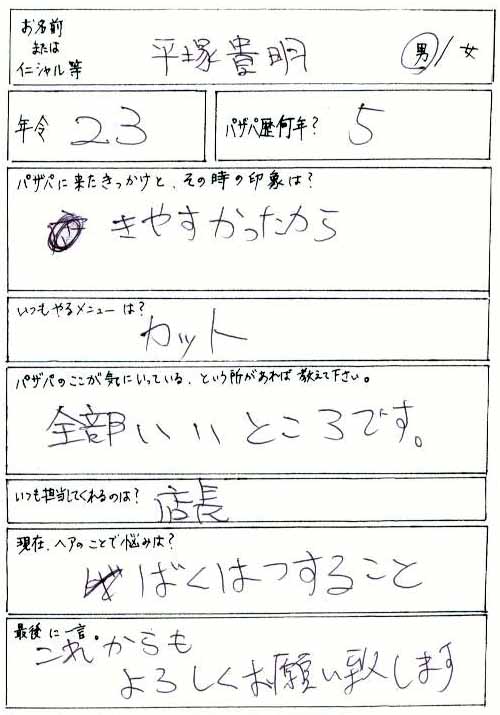 お名前
または
イニシャル等
平塚貴明
男/女
年令
23
パザパ歴何年?
5
パザパに来たきっかけと、その時の印象は?
きやすかったから
いつもやるメニューは?
カット
パザパのここが気にいっている、という所があれば教えて下さい。
全部いいところです。
いつも担当してくれるのは?
店長
現在、ヘアのことで悩みは?
ばくはつすること
最後に一言。
これからも
よろしくお願い致します